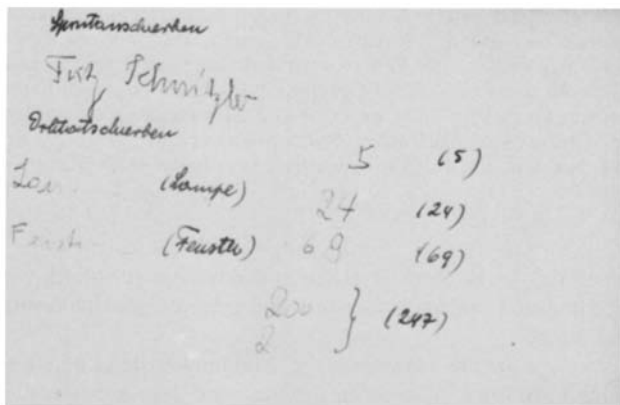 Spontanschreiben
Fritz Schnitzler
Diktatschreiben
5 (5)
Lam (Lampe) 24 (24)
Fenst (Fenster) 69 (69)
200
2 } (247)